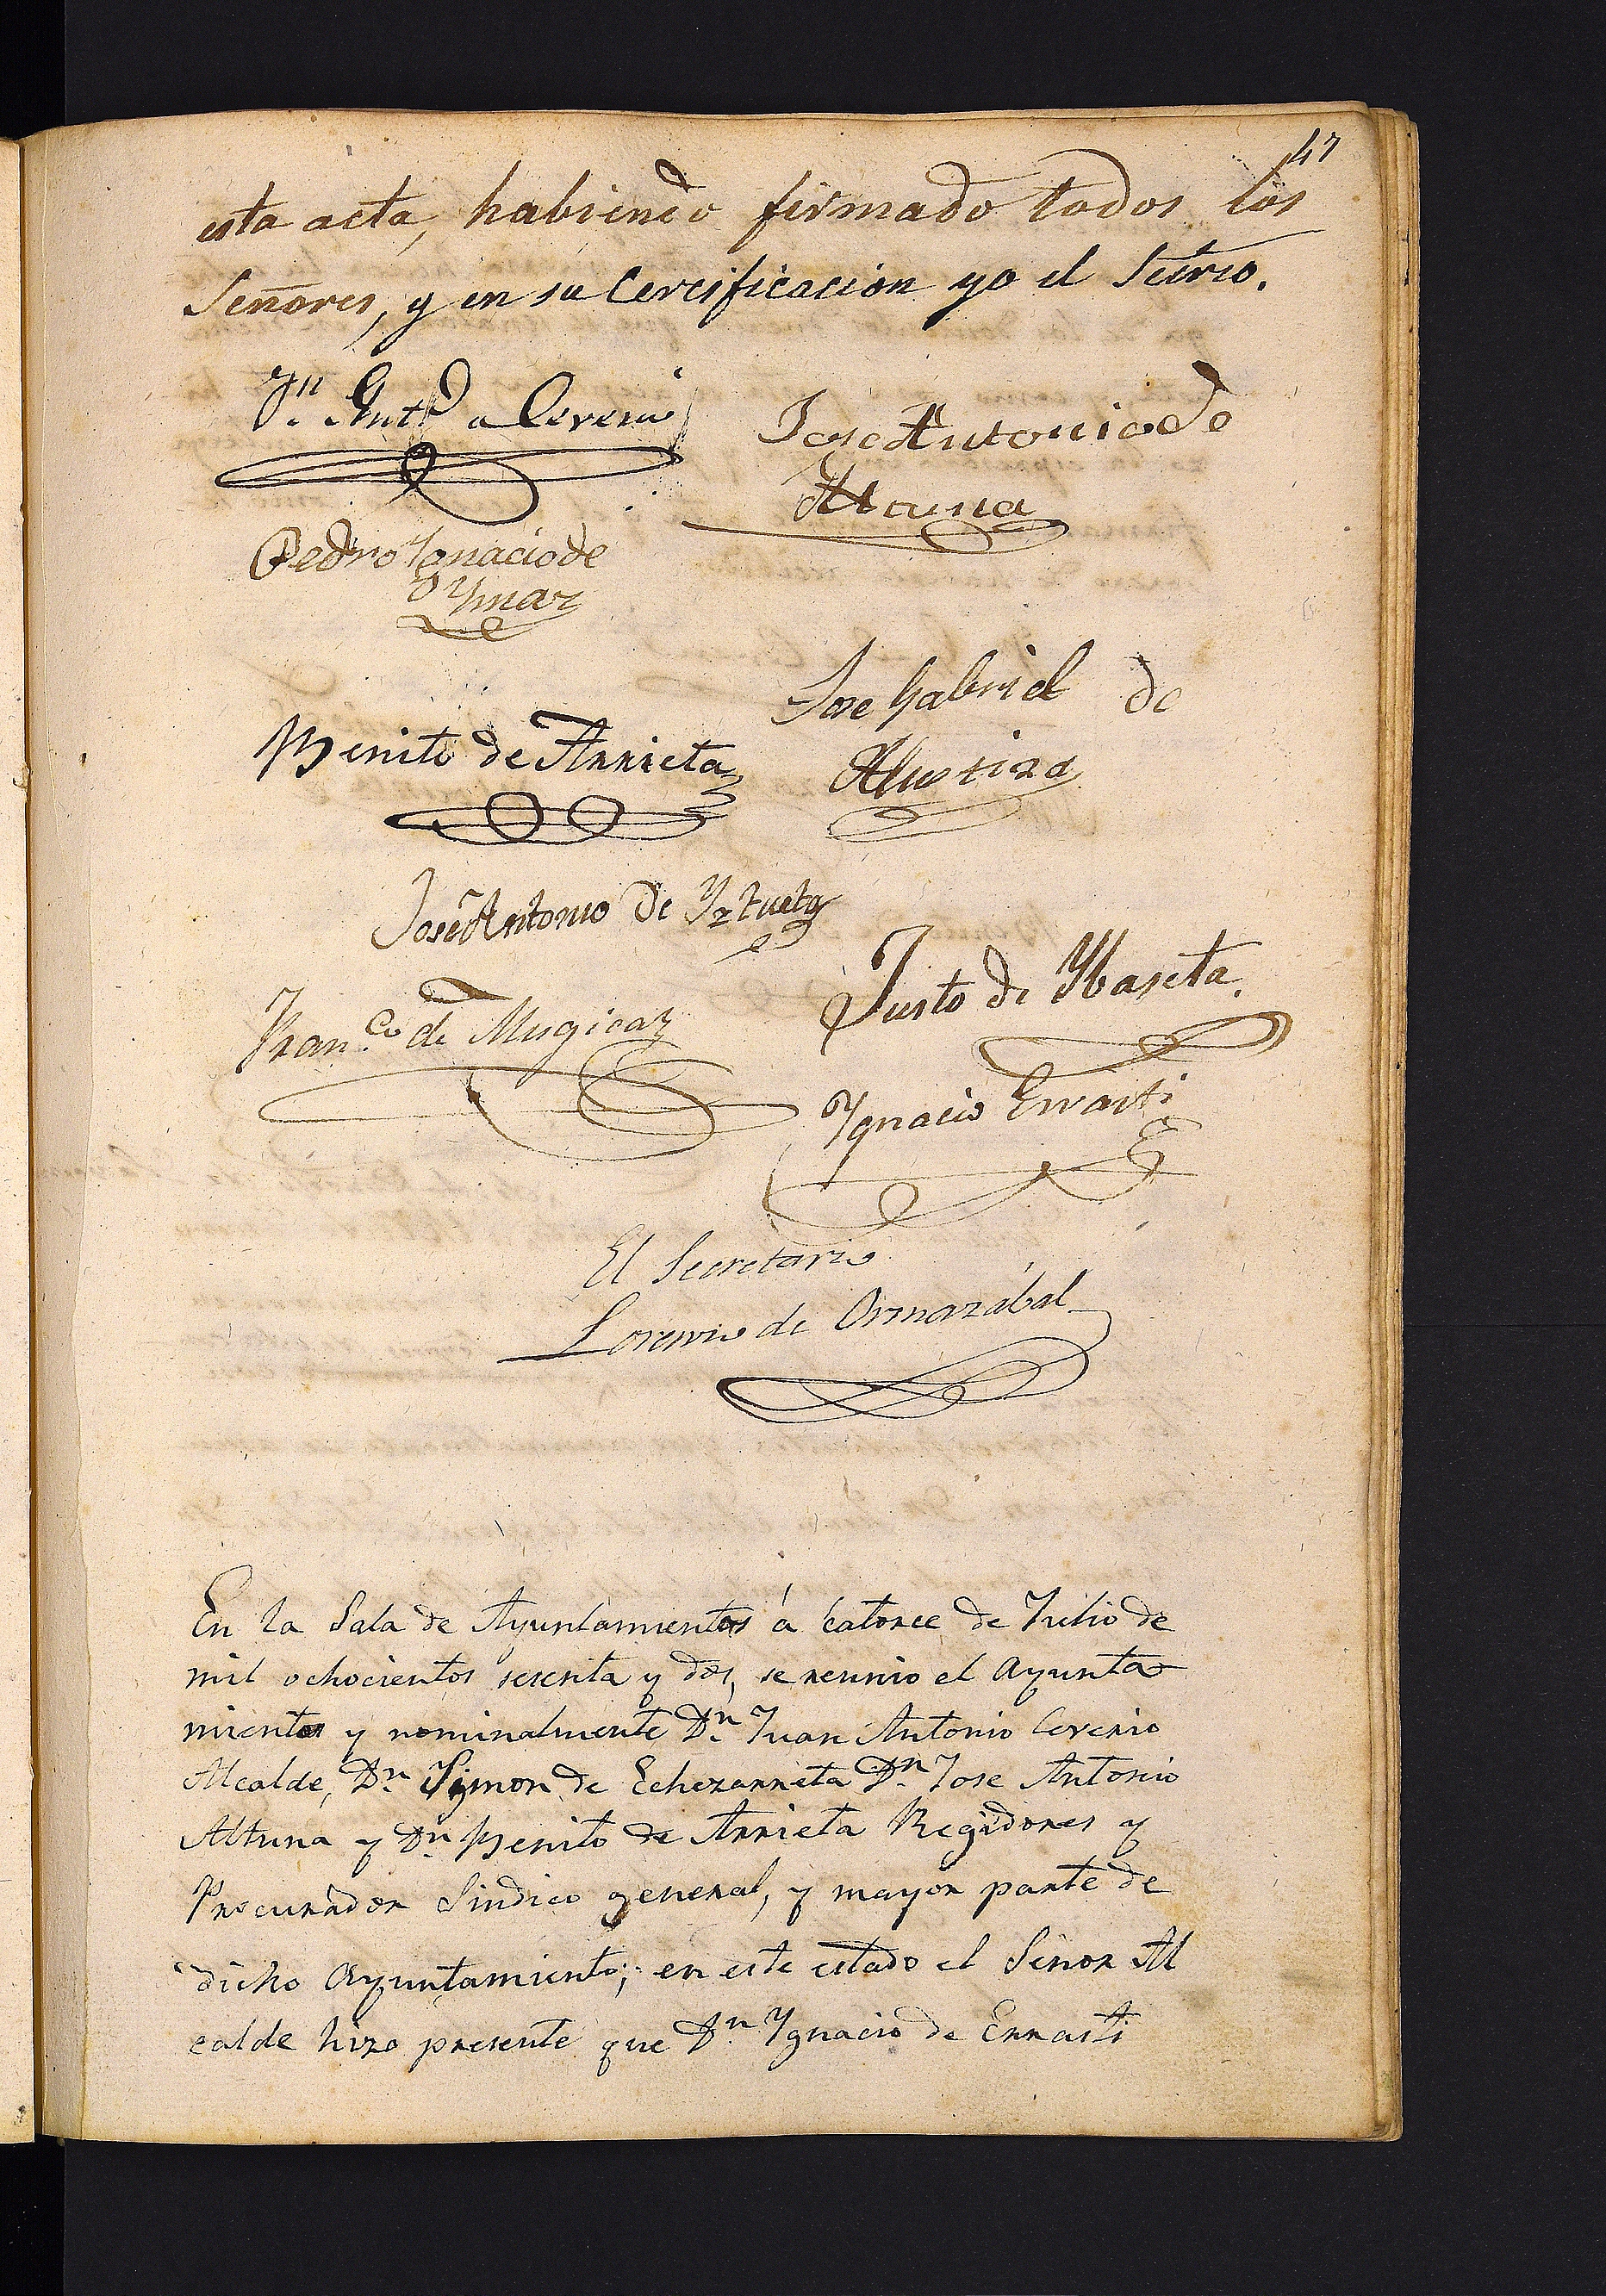 47
esta acta, habiendo firmado todos los
Señores, y en su Certificacion yo el Secrio.
Jn. Anto. a Cerero
Jose Antonio de
Altuna
Pedro Ygnacio de
Ymaz
Jose Gabriel de
Alustiza
Benito de Arrieta
José Antonio de Yztueta
Justo de Ybaseta.
Fran.co de Mugica
Ygnacio Errasti
El Secretario
Lorenzo de Ormazábal
En la Sala de Ayuntamientos á catorce de Julio de
mil ochocientos sesenta y dos, se reunio el Ayunta
mientos y nominalmente Dn. Juan Antonio Cererio
Alcalde, Dn. Symon de Echezarreta Dn. Jose Antonio
Altuna y Dn. Benito de Arrieta Regidores y
Procurador Sindico general, y mayor parte de
dicho Ayuntamiento; en este estado el Señor Al
calde hizo presente que Dn. Ygnacio de Errasti